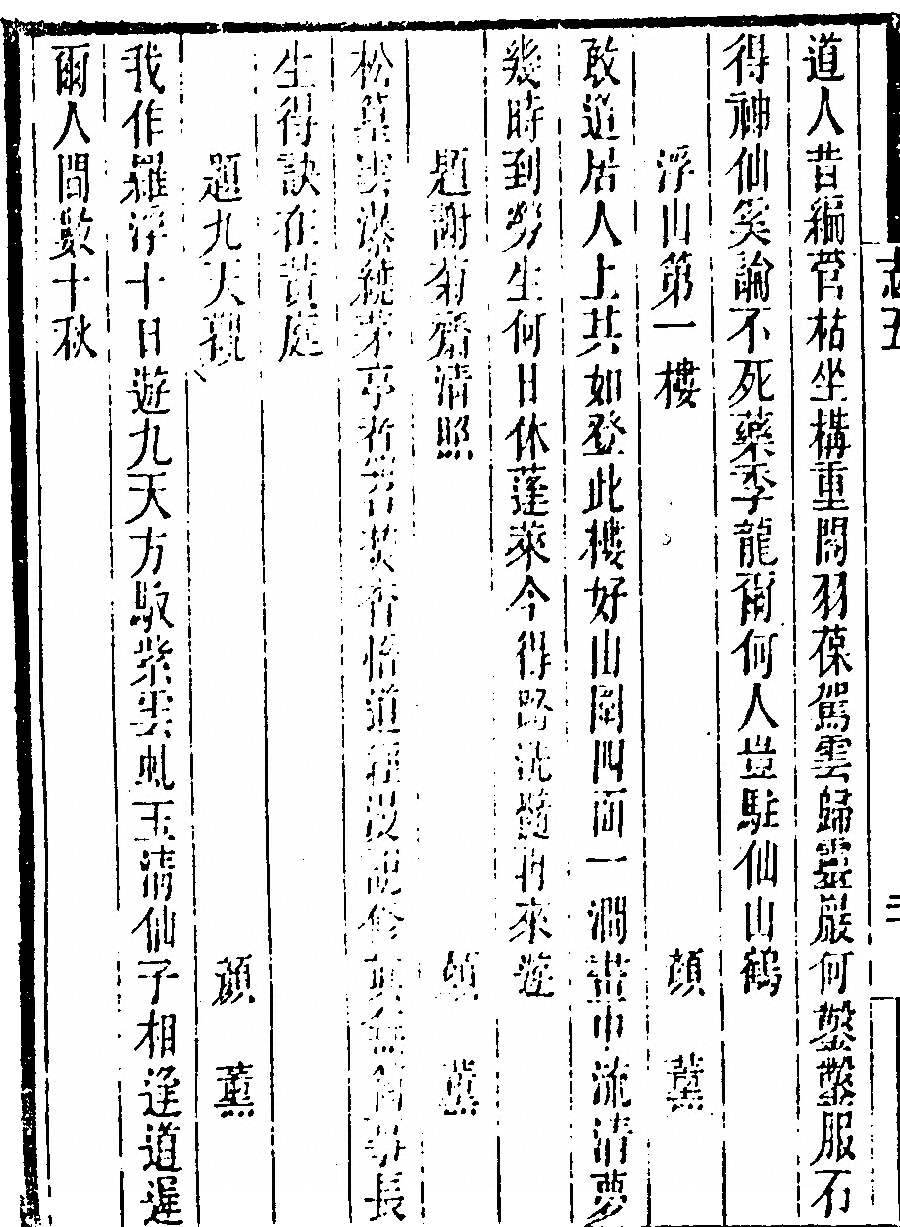 道人昔編菅枯坐構重閣羽葆駕雲歸叢巖何鑿鑿服石
得神仙矣論不死藥李龍爾何人豈駐仙山鶴
浮山第一樓 顏薰
敢道居人上其如登此樓好山圍四面一澗畫中流清夢
幾時到勞生何日休蓬萊今得路洗髓再來遊
題謝菊齋清照 顏薰
松 雲瀑繞茅亭煮 茶香悟道 沒說修真無 事長
生得訣在黃庭
題九天觀 顏薰
我作羅浮十日遊九天方馭紫雲虬玉清仙子相逢道遲
爾人間數十秋
志五
二